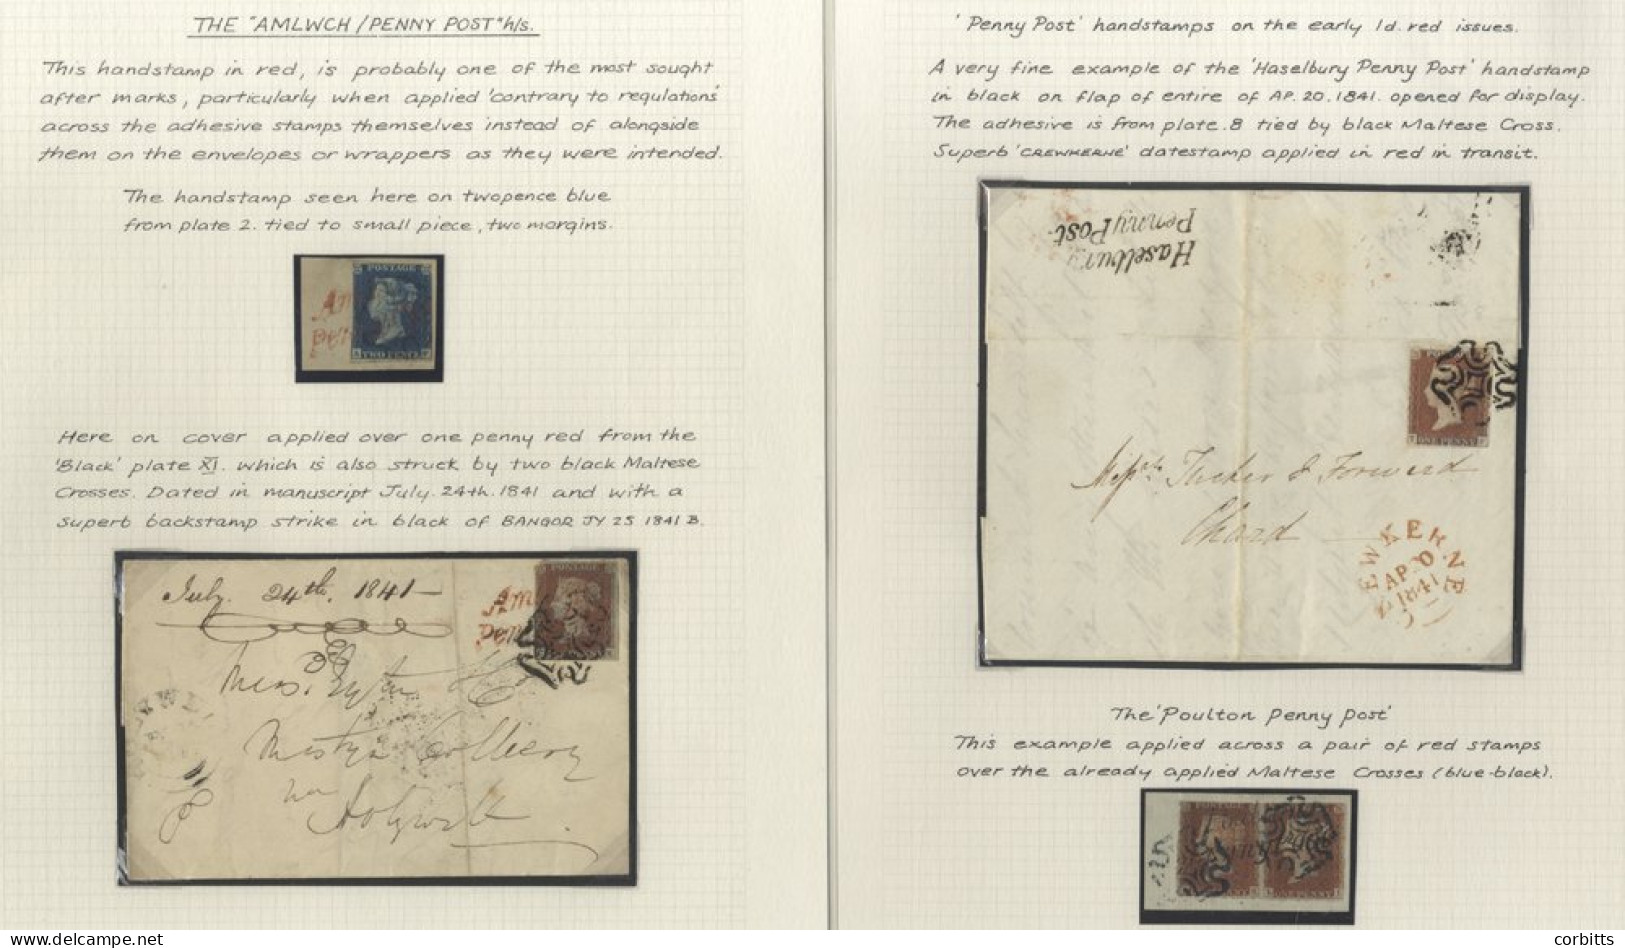 THE "AMLWCH/PENNY POST" h/s.
This handstamp in red, is probably one of the most sought
after marks, particularly when applied 'contrary to regulations'
across the adhesive stamps themselves instead of alongside
them on the envelopes or wrappers as they were intended.
The handstamp seen here on twopence blue
from plate 2. tied to small piece, two margins.
POSTAGE
TWO PENCE
Here on cover applied over one penny red from the
'Black' plate XI. which is also struck by two black Maltese
Crosses. Dated in manuscript July. 24th. 1841 and with a
superb backstamp strike in black of BANGOR JY 25 1841 B.
July. 24th. 1841
'Penny Post' handstamps on the early 1d. red issues.
A very fine example of the 'Haselbury Penny Post' handstamp
in black on flap of entire of AP. 20. 1841. opened for display.
The adhesive is from plate. 8 tied by black Maltese Cross.
Superb 'CREWKERNE' datestamp applied in red in transit.
Haselbury
Penny Post.
ONE PENNY
Tucker & Forward
Chard
EWKERNE
1841
The 'Poulton Penny Post'
This example applied across a pair of red stamps
over the already applied Maltese Crosses (blue-black).
ONE PENNY
corbitts